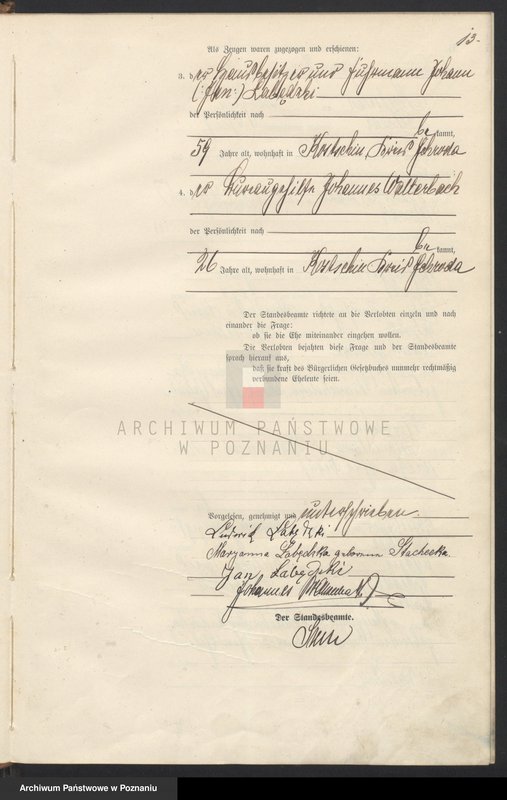 13.
Als Zeugen waren zugezogen und erschienen:
3. der Hausbesitzer und Fuhrmann Johann
(: Jan :) Labędzki
der Persönlichkeit nach
be kannt,
59 Jahre alt, wohnhaft in Kostschin, Kreis Schroda
4. der Bureaugehilfe Johannes Walterbach
der Persönlichkeit nach
be kannt,
26 Jahre alt, wohnhaft in Kostschin Kreis Schroda
Der Standesbeamte richtete an die Verlobten einzeln und nach
einander die Frage:
ob sie die Ehe miteinander eingehen wollen.
Die Verlobten bejahten diese Frage und der Standesbeamte
sprach hierauf aus,
daß sie kraft des Bürgerlichen Gesetzbuches nunmehr rechtmäßig
verbundene Eheleute seien.
ARCHIWUM PAŃSTWOWE
W POZNANIU
Vorgelesen, genehmigt und unterschrieben.
Ludwik Labędzki
Maryanna Labędzka geborene Stachecka.
Jan Labędzki
Johannes
Der Standesbeamte.
Archiwum Państwowe w Poznaniu